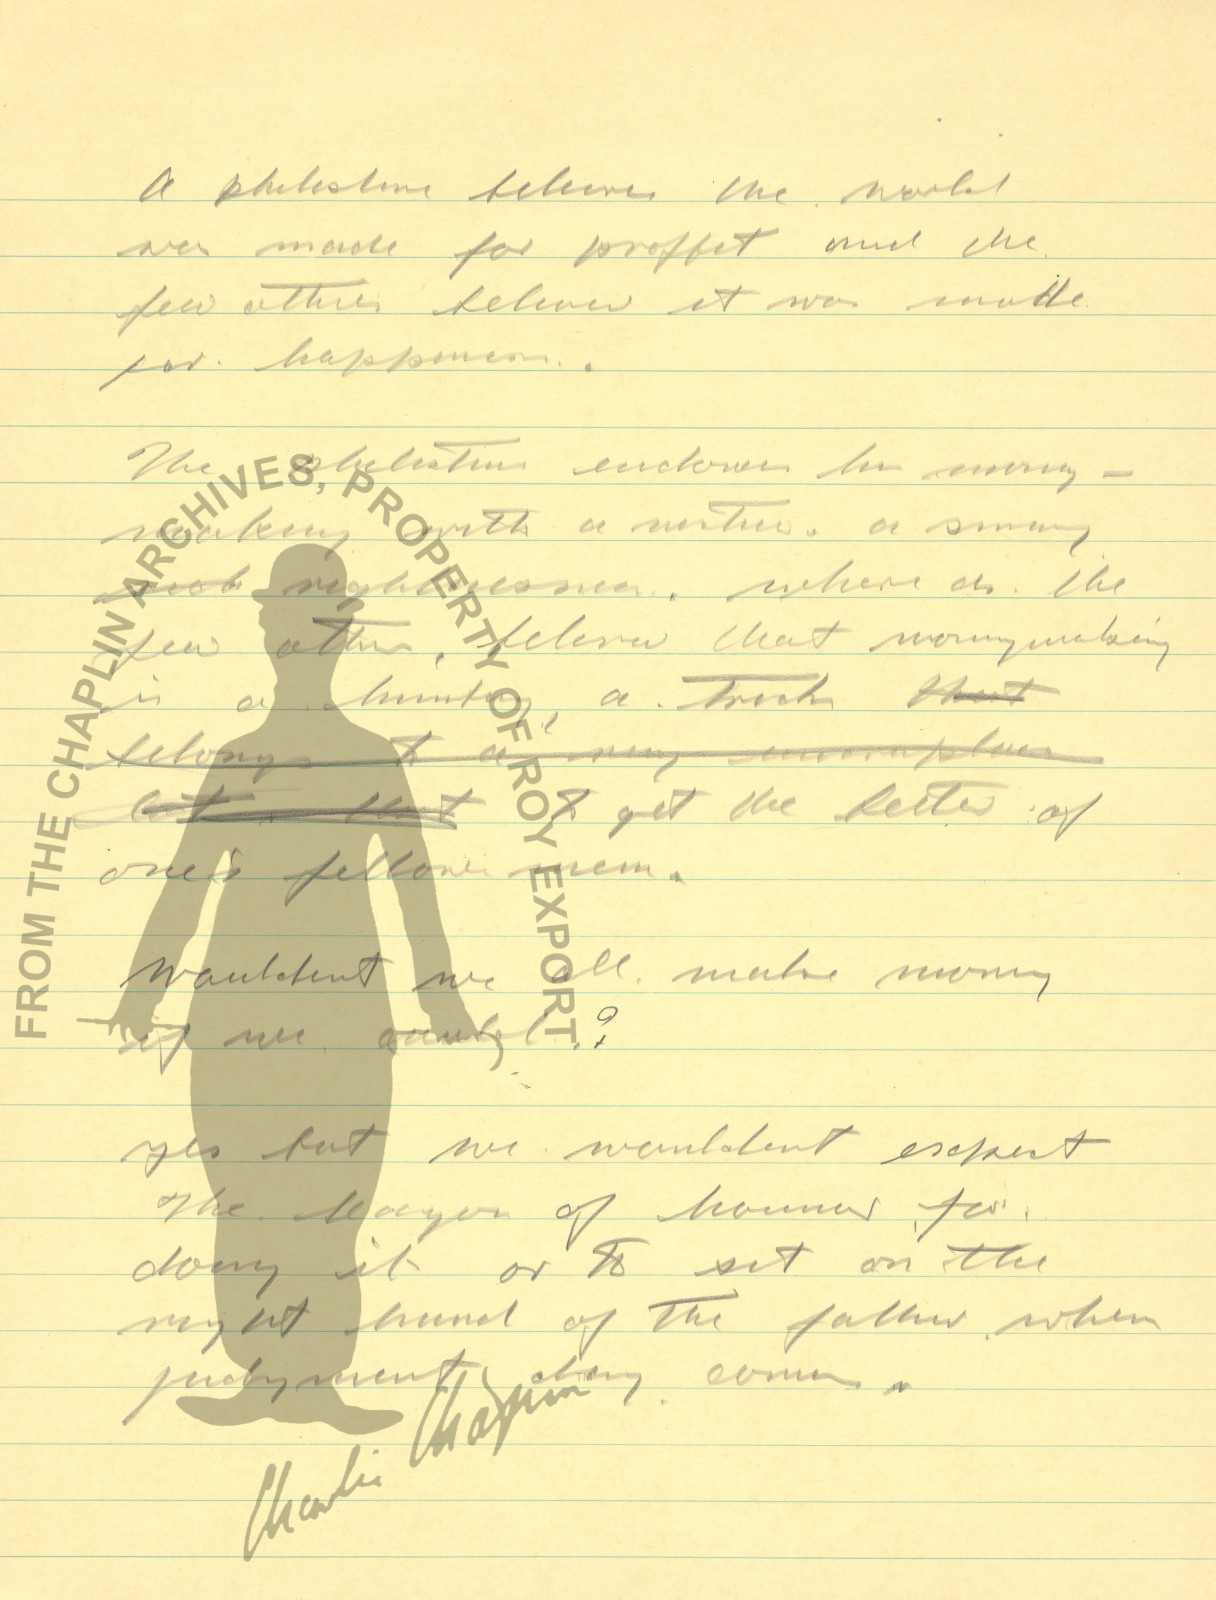 A philistine believes the world
was made for proffet and the
few others believe it was made
for happiness.
The philistine endows his money-
making with a virtue. a smug
righteousness. where as the
few others, believe that moneymaking
is a hunting, a trick that
belongs to a very
but that to get the better of
one's fellow men.
Wouldent we all make money
if we could?
yes but we wouldent expect
the of honnor for
doing it or to set on the
right hand of the father when
judgment day comes.
Charlie Chaplin
FROM THE CHAPLIN ARCHIVES, PROPERTY OF ROY EXPORT